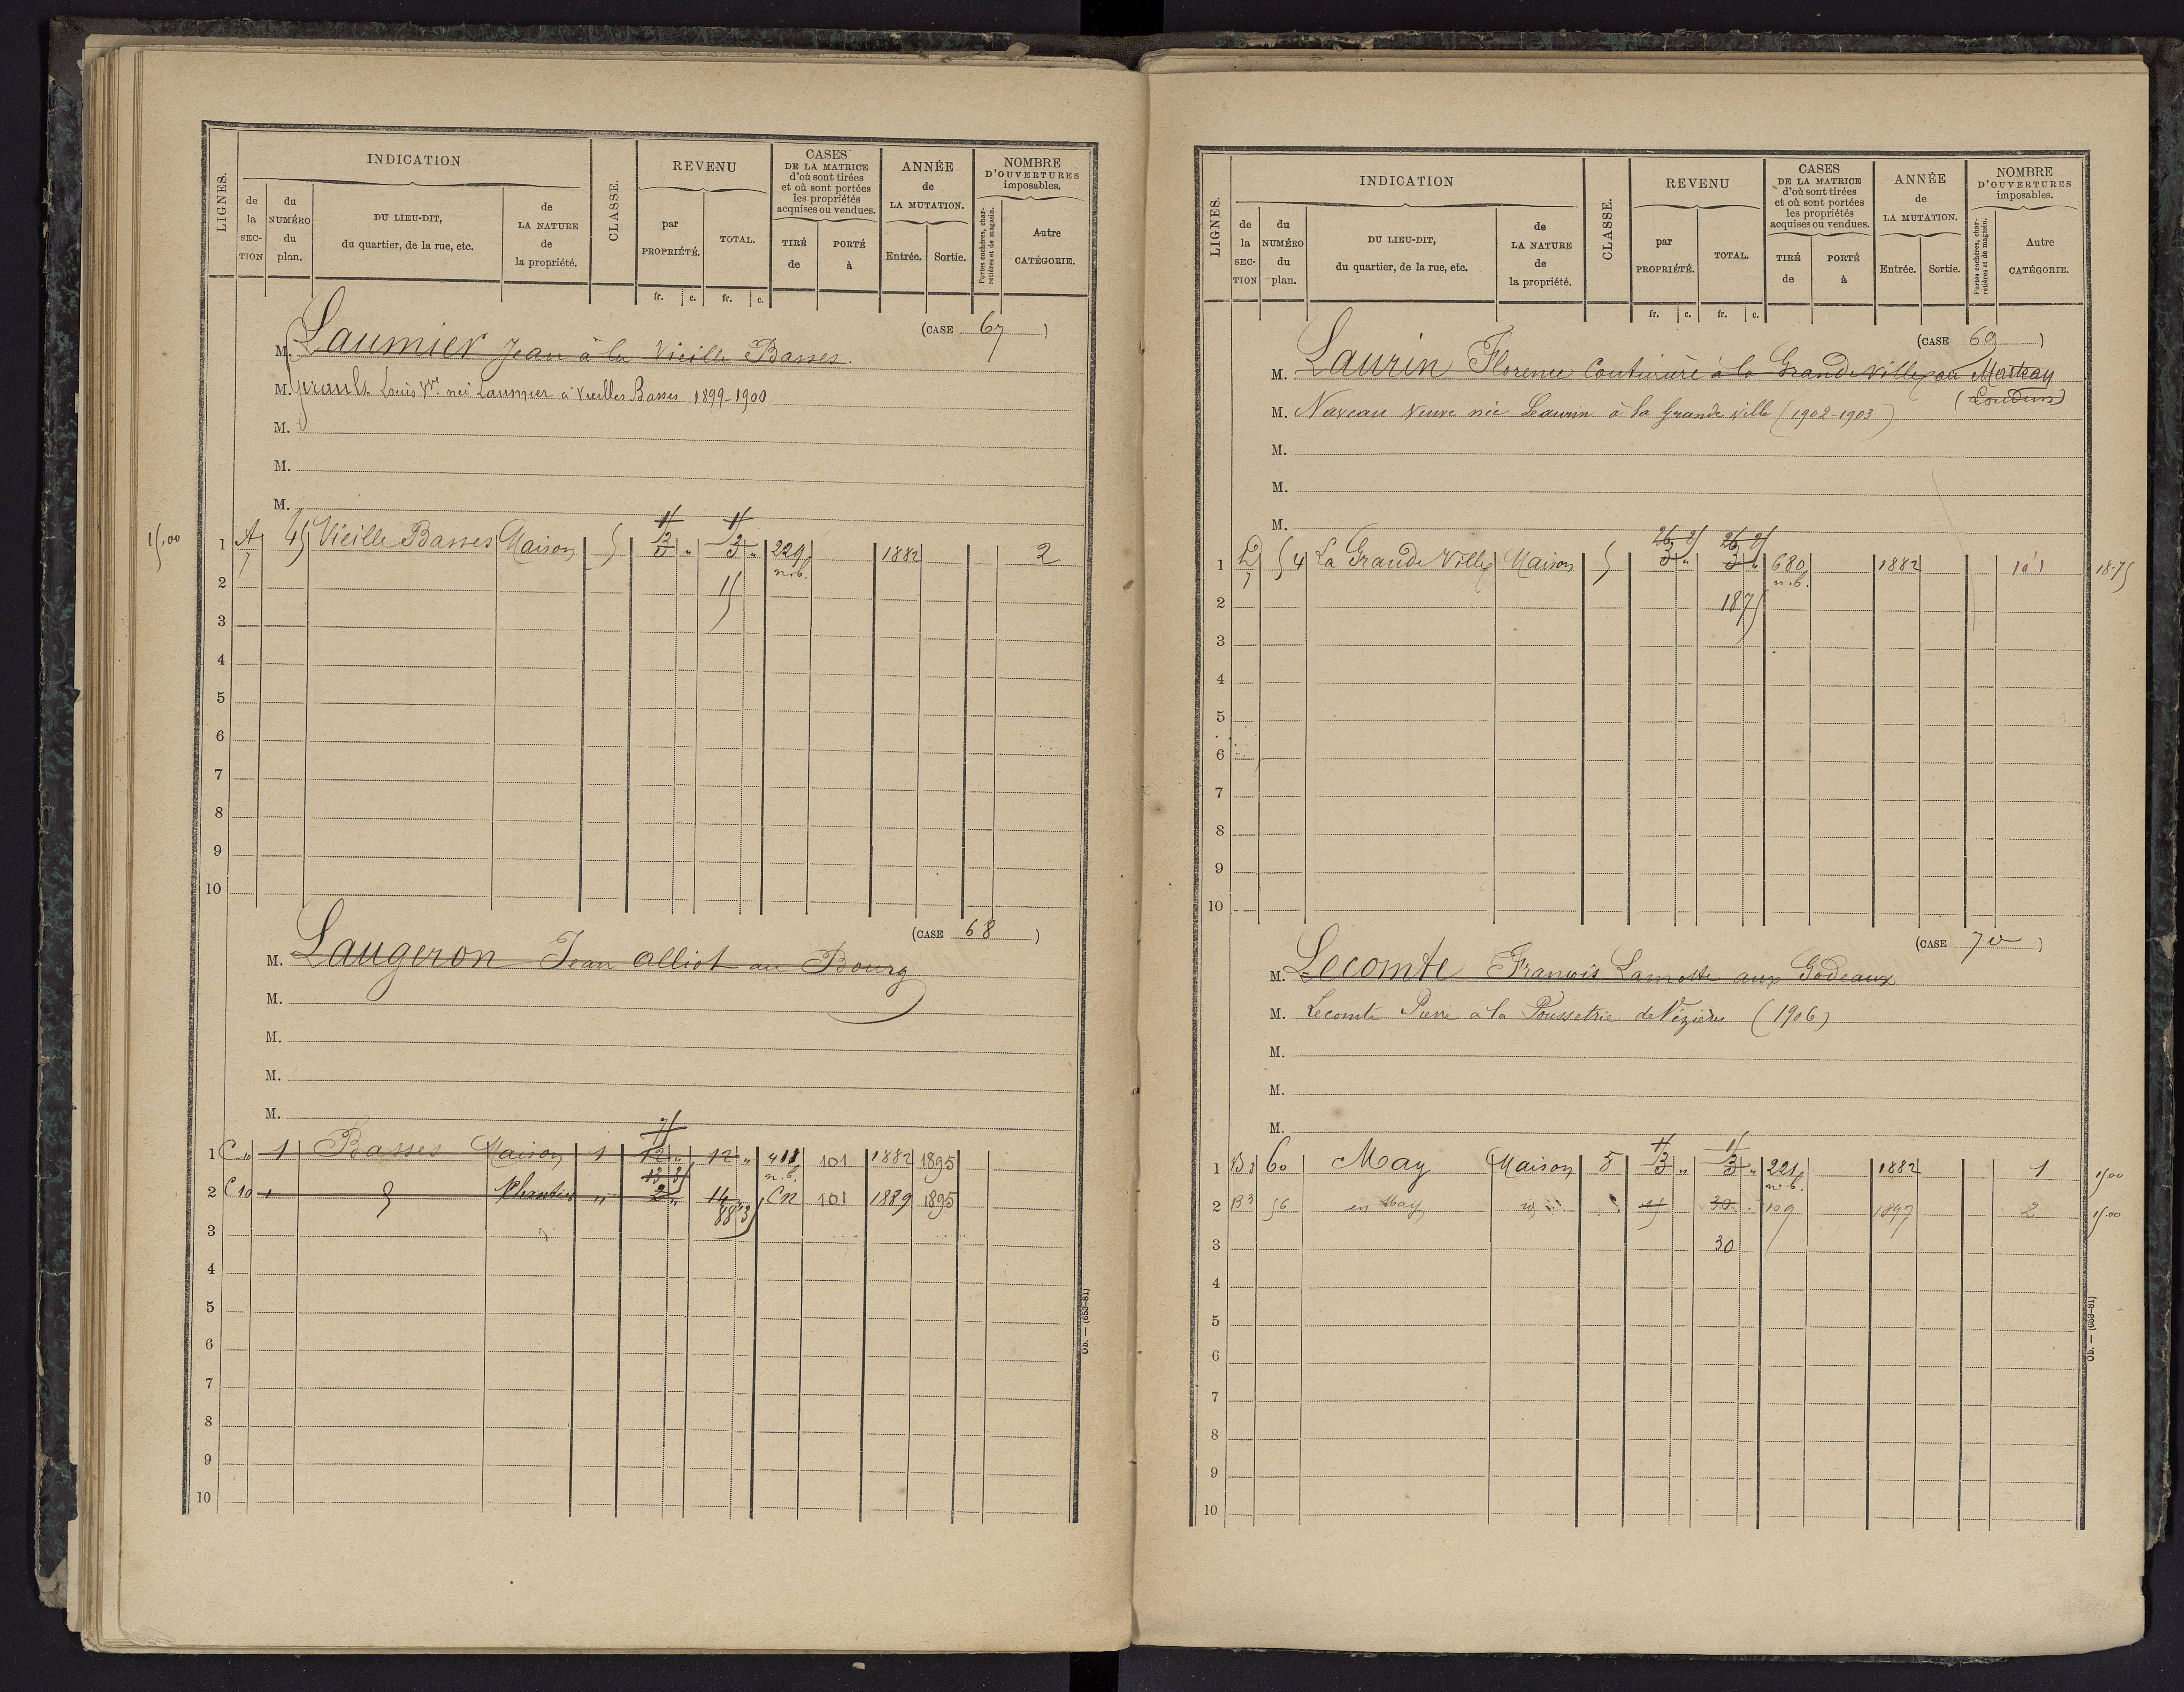 LIGNES.
INDICATION
de la SECTION
du NUMÉRO du plan.
DU LIEU-DIT, du quartier, de la rue, etc.
de LA NATURE de la propriété.
CLASSE.
REVENU
par PROPRIÉTÉ.
TOTAL.
fr. c. fr. c.
CASES DE LA MATRICE d'où sont tirées et où sont portées les propriétés acquises ou vendues.
TIRÉ de
PORTÉ à
ANNÉE de LA MUTATION.
Entrée. Sortie.
NOMBRE D'OUVERTURES imposables.
Portes cochères, charretières et de magasin.
Autre CATÉGORIE.
(CASE 67)
M. Laumier Jean à la Vieille Basses.
M. Girault Louis Vve née Laumier à Vieilles Basses 1899-1900
M.
M.
M.
15.00 1 A 45 Vieille Basses Maison 5 3 " 3 " 229 1882 2
7 n.b.
2 15
3
4
5
6
7
8
9
10
(CASE 68)
M. Laugeron Jean Alliot au Bourg
M.
M.
M.
M.
75
1 C 10 1 Basses Maison 1 12 " 12 " 418 101 1882 1895
13 3 n.b.
2 C 10 1 Chantier " 2 " 14 Cn 101 1889 1895
88 3
3
4
5
6
7
8
9
10
Ob. — (653-81)
LIGNES.
INDICATION
de la SECTION
du NUMÉRO du plan.
DU LIEU-DIT, du quartier, de la rue, etc.
de LA NATURE de la propriété.
CLASSE.
REVENU
par PROPRIÉTÉ.
TOTAL.
fr. c. fr. c.
CASES DE LA MATRICE d'où sont tirées et où sont portées les propriétés acquises ou vendues.
TIRÉ de
PORTÉ à
ANNÉE de LA MUTATION.
Entrée. Sortie.
NOMBRE D'OUVERTURES imposables.
Portes cochères, charretières et de magasin.
Autre CATÉGORIE.
(CASE 69)
M. Laurin Florence Couturière à la Grande Ville au
(Loudun)
M. Naveau Veuve née Laurin à la Grande Ville (1902-1903)
M.
M.
M.
1 D 54 La Grande Ville Maison 5 3 " 3 " 680 1882 1 18.75
7 n.b.
2 18 75
3
4
5
6
7
8
9
10
(CASE 70)
M. Lecomte François Lamotte aux Godeaux
M. Lecomte Pierre à la Poussetrie de Vézières (1906)
M.
M.
M.
1 B3 60 May Maison 5 3 " 3 " 221 1882 1 15.00
n.b.
2 B3 56 en May 15 30 109 1897 2 15.00
3 30
4
5
6
7
8
9
10
Ob. — (653-81)